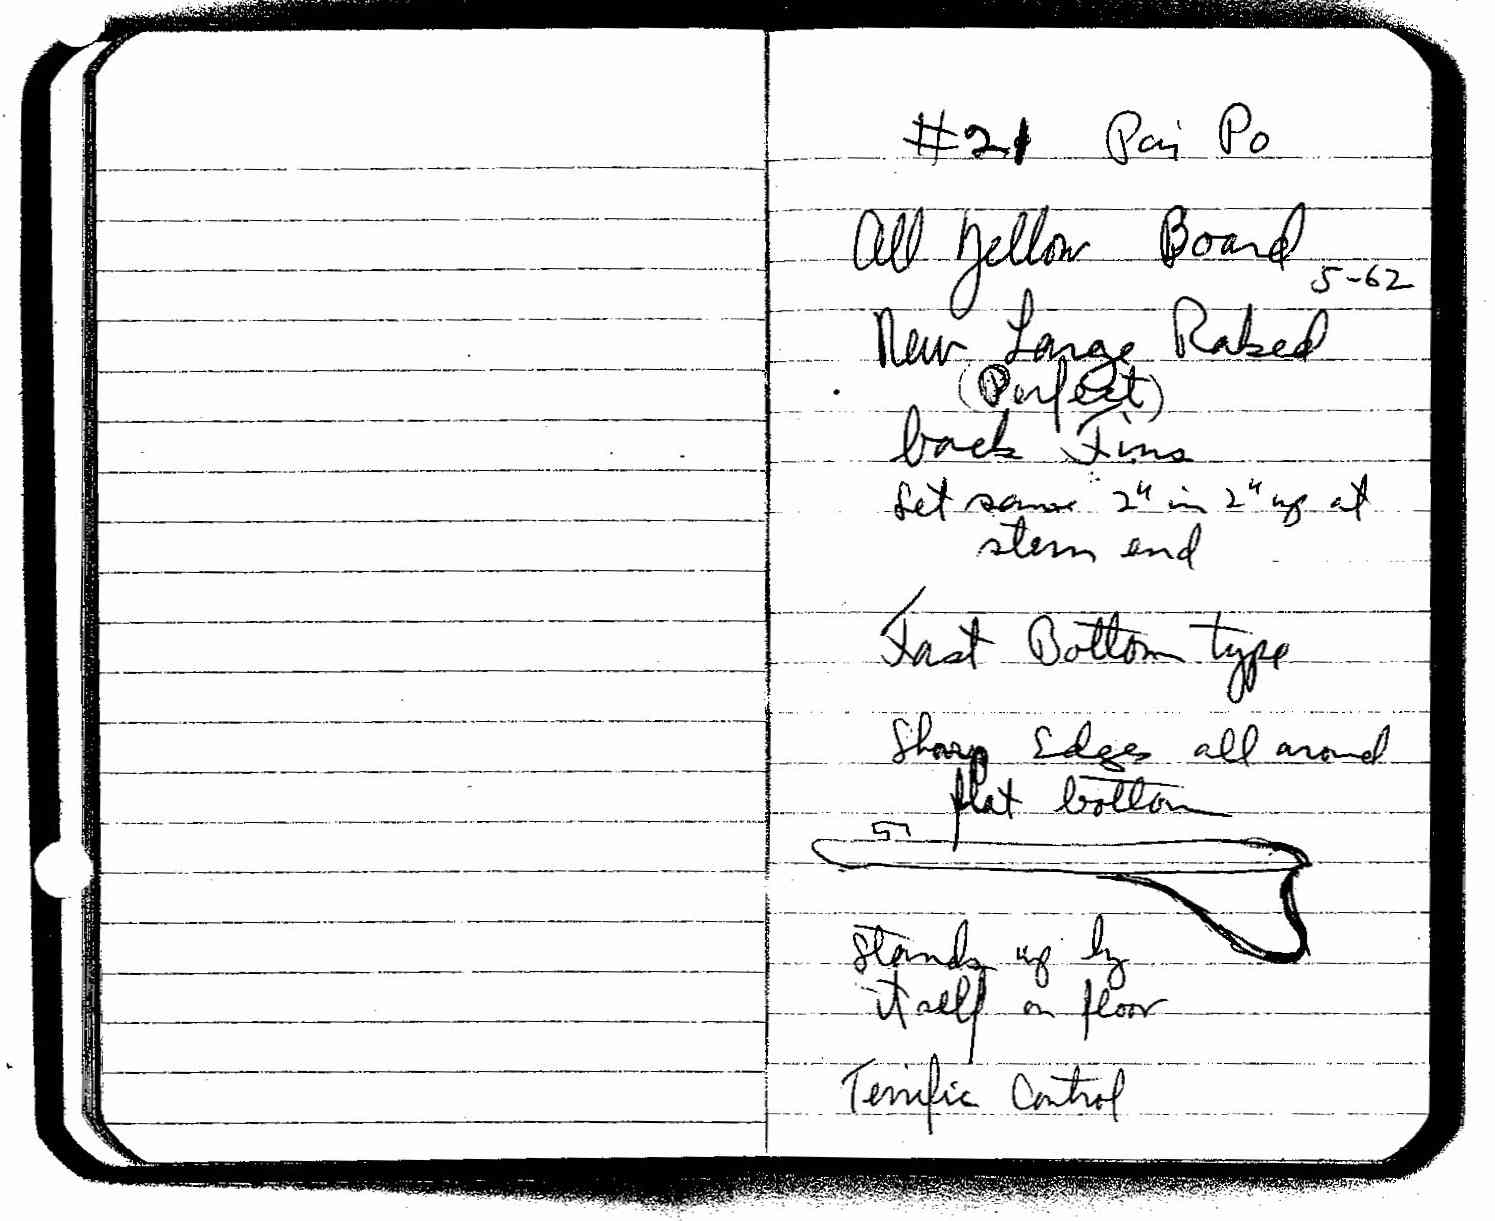 #21 Pai Po
All Yellow Board
5-62
New Large Raked
(Perfect)
back Fins
Set same 2" in 2" up at
stern end
Fast Bottom type
Sharp Edges all around
flat bottom
Stands up by
itself on floor
Terrific Control